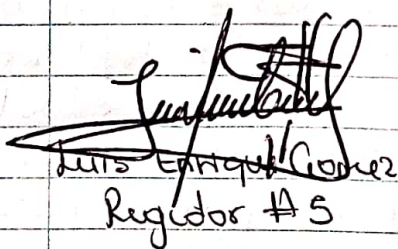 Luis Enrique Gomez
Regidor # 5